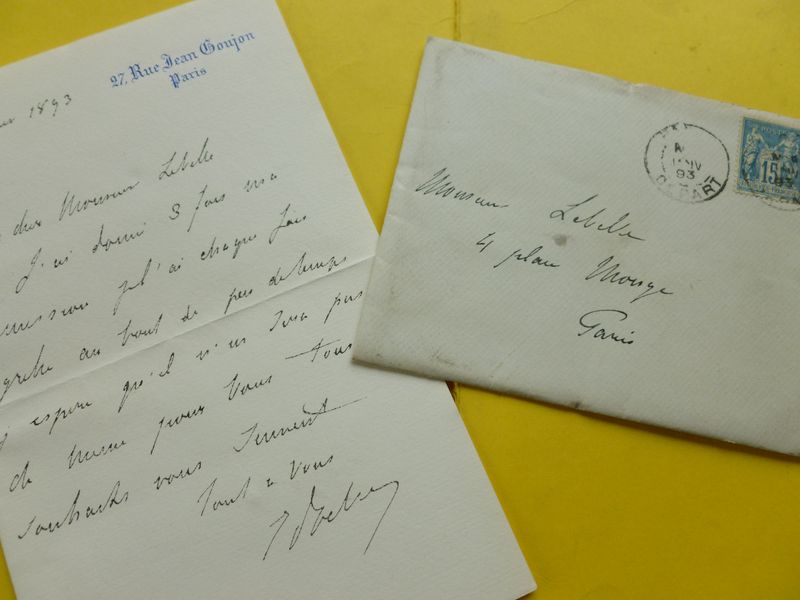 27, Rue Jean Goujon
Paris
1893
cher Monsieur Lebelle
J'ai donné 3 fois ma
mission je l'ai chaque fois
au bout de peu de temps
espère qu'il n'en sera pas
de même pour vous Tous
souhaits vous suivent
Tout à vous
Monsieur Lebelle
4 place Monge
Paris
JANV
93
DEPART
POSTES
15